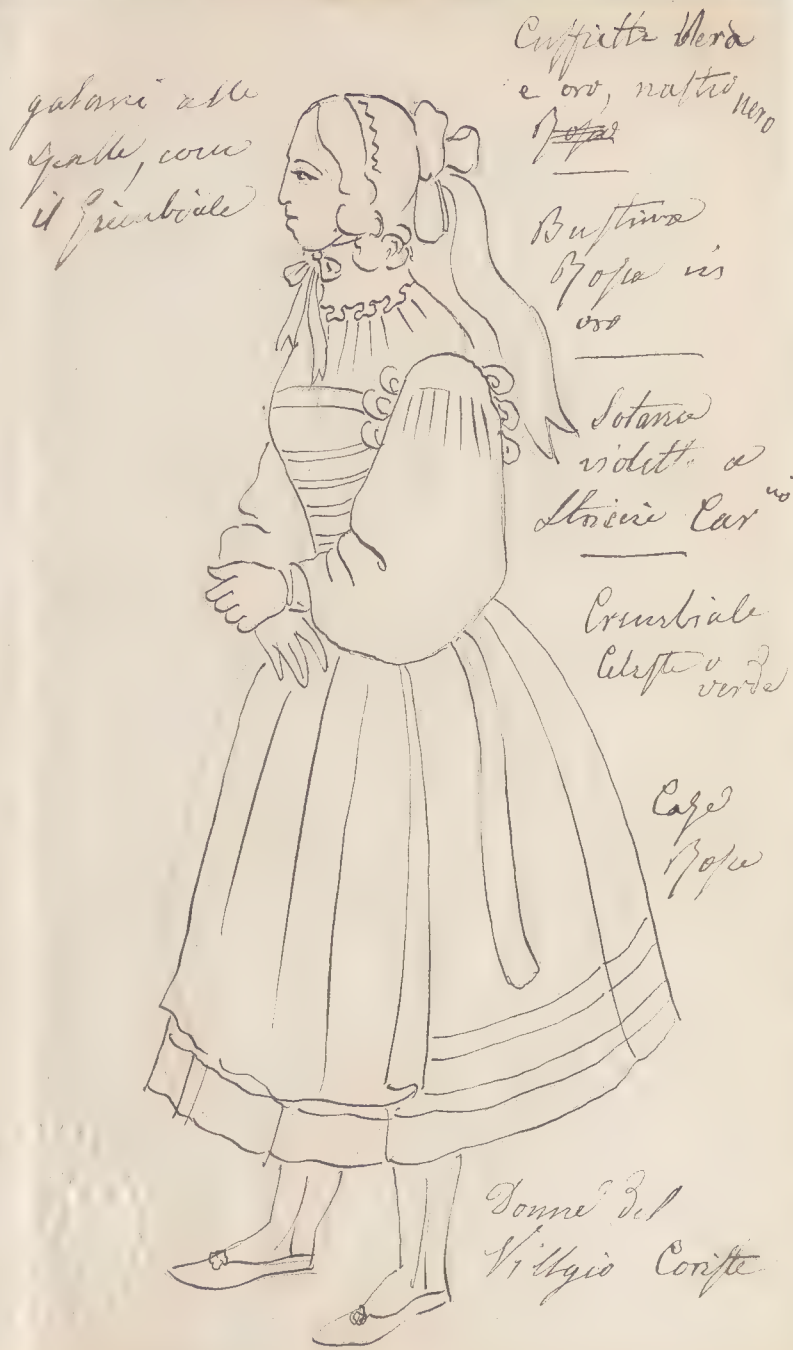 galani alle
spalle, come
il Grembiale
Cuffietta Verde
e oro, nastro nero
Rosa
Bustino
Rosa in
oro
Sotana
violetta a
Striscie Car
Grembiale
Celeste o
verde
Calze
Rosa
Donne del
Villagio Coriste